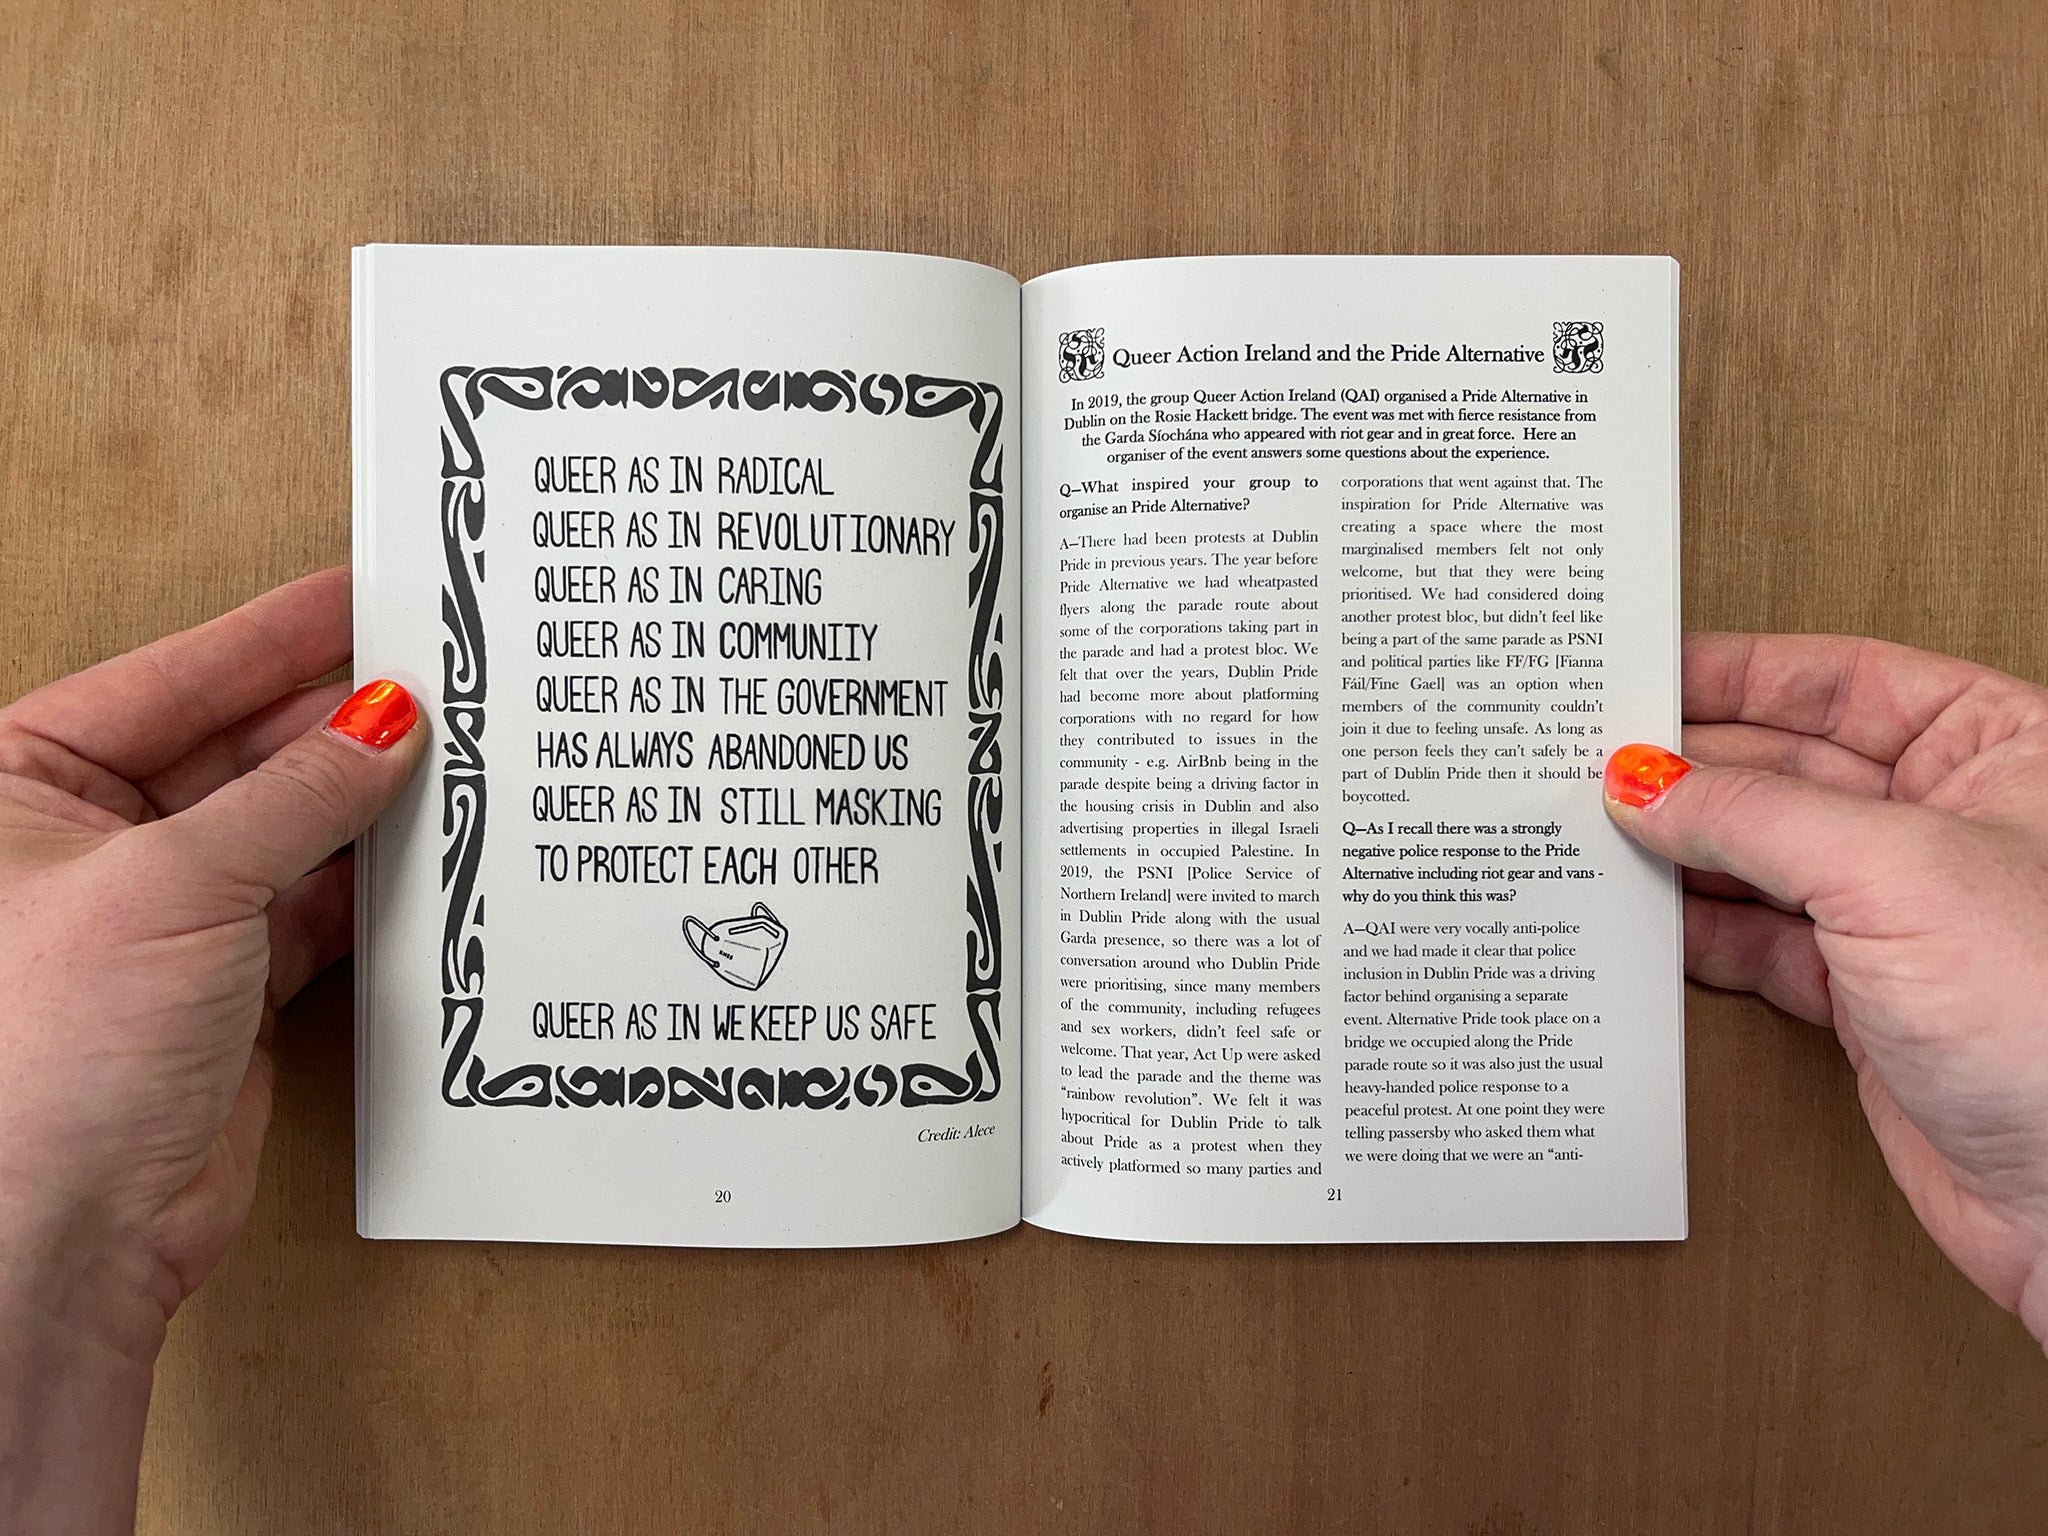 QUEER AS IN RADICAL
QUEER AS IN REVOLUTIONARY
QUEER AS IN CARING
QUEER AS IN COMMUNITY
QUEER AS IN THE GOVERNMENT
HAS ALWAYS ABANDONED US
QUEER AS IN STILL MASKING
TO PROTECT EACH OTHER
KN95
QUEER AS IN WE KEEP US SAFE
Credit: Alece
20
Queer Action Ireland and the Pride Alternative
In 2019, the group Queer Action Ireland (QAI) organised a Pride Alternative in
Dublin on the Rosie Hackett bridge. The event was met with fierce resistance from
the Garda Síochána who appeared with riot gear and in great force. Here an
organiser of the event answers some questions about the experience.
Q—What inspired your group to
organise an Pride Alternative?
A—There had been protests at Dublin
Pride in previous years. The year before
Pride Alternative we had wheatpasted
flyers along the parade route about
some of the corporations taking part in
the parade and had a protest bloc. We
felt that over the years, Dublin Pride
had become more about platforming
corporations with no regard for how
they contributed to issues in the
community - e.g. AirBnb being in the
parade despite being a driving factor in
the housing crisis in Dublin and also
advertising properties in illegal Israeli
settlements in occupied Palestine. In
2019, the PSNI [Police Service of
Northern Ireland] were invited to march
in Dublin Pride along with the usual
Garda presence, so there was a lot of
conversation around who Dublin Pride
were prioritising, since many members
of the community, including refugees
and sex workers, didn't feel safe or
welcome. That year, Act Up were asked
to lead the parade and the theme was
"rainbow revolution". We felt it was
hypocritical for Dublin Pride to talk
about Pride as a protest when they
actively platformed so many parties and
corporations that went against that. The
inspiration for Pride Alternative was
creating a space where the most
marginalised members felt not only
welcome, but that they were being
prioritised. We had considered doing
another protest bloc, but didn't feel like
being a part of the same parade as PSNI
and political parties like FF/FG [Fianna
Fáil/Fine Gael] was an option when
members of the community couldn't
join it due to feeling unsafe. As long as
one person feels they can't safely be a
part of Dublin Pride then it should be
boycotted.
Q—As I recall there was a strongly
negative police response to the Pride
Alternative including riot gear and vans -
why do you think this was?
A—QAI were very vocally anti-police
and we had made it clear that police
inclusion in Dublin Pride was a driving
factor behind organising a separate
event. Alternative Pride took place on a
bridge we occupied along the Pride
parade route so it was also just the usual
heavy-handed police response to a
peaceful protest. At one point they were
telling passersby who asked them what
we were doing that we were an "anti-
21